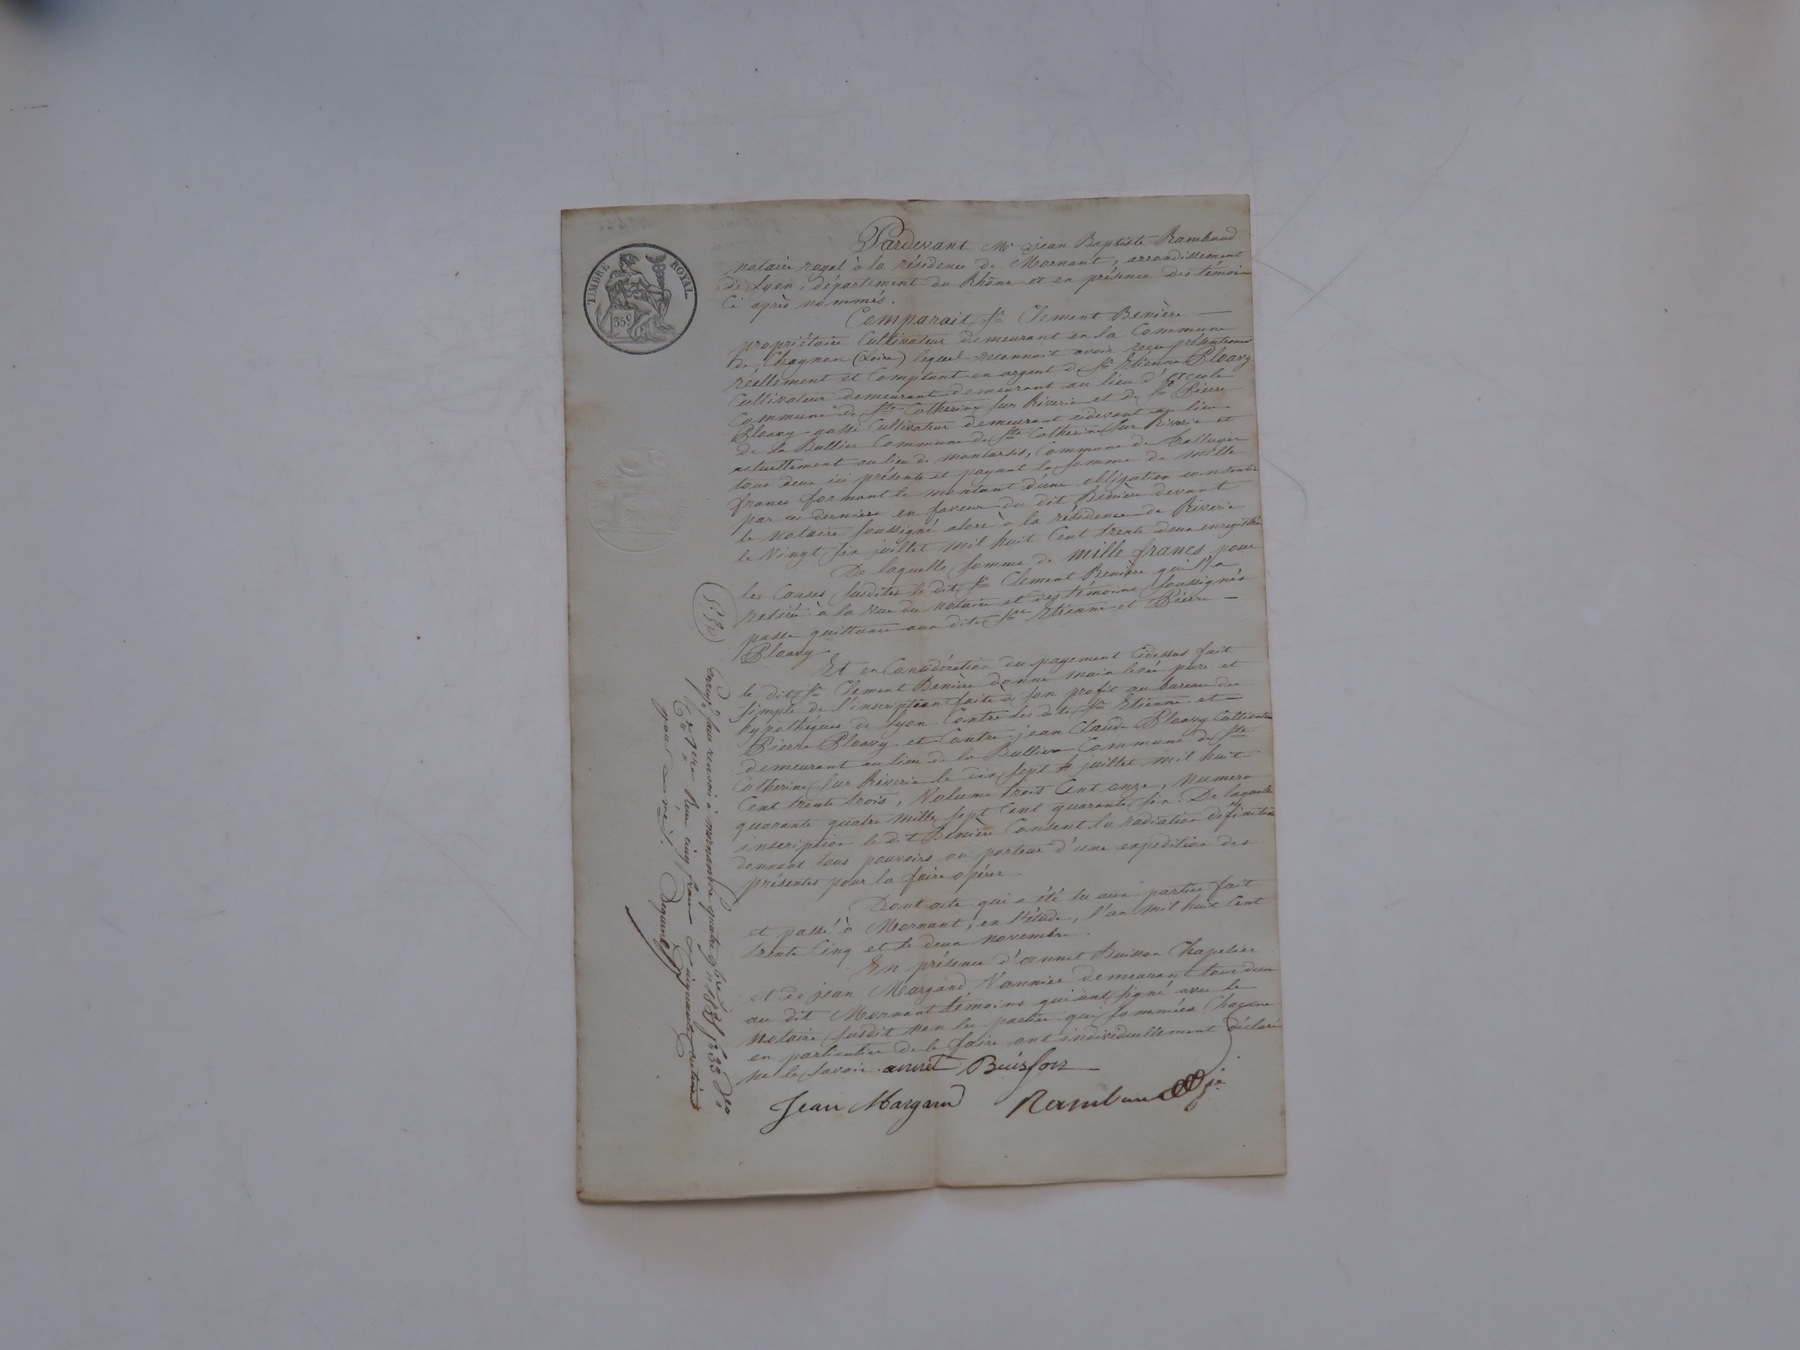 TIMBRE ROYAL
35c
Pardevant Me jean Baptiste Rambaud
notaire royal à la résidence de Mornant, arrondissement
de Lyon, département du Rhône et en présence des témoins
Ci après nommés.
Comparait Sr Clement Benière
propriétaire Cultivateur demeurant en la Commune
de Chagnon (Loire) lequel reconnait avoir reçu présentement
réellement et Comptant en argent de Sr Etienne Ploavy
Cultivateur demeurant demeurant au lieu d'
Commune de Ste Catherine sur Riverie et de Sr Pierre
Ploavy aussi Cultivateur demeurant cidevant au lieu
de La Bullier Commune de Ste Catherine sur Riverie et
actuellement au lieu de montarsis, Commune de
tous deux ici présents et payant la somme de mille
francs formant le montant d'une obligation consentie
par ces derniers en faveur du dit Benière devant
le notaire soussigné alors à la résidence de Riverie
le Vingt six juillet mil huit Cent trente deux enregistré
De laquelle somme de mille francs, pour
les Causes susdites le dit Sr Clement Benière qui l'a
retiré à la vue du notaire et des témoins soussignés
passe quittance aux dits Srs Etienne et Pierre
Ploavy.
Et en Considération du payement Cidessus fait
le dit Sr Clement Benière donne main levée pure et
simple de l'inscription faite à son profit au bureau des
hypothèques de Lyon Contre les dits Srs Etienne et
Pierre Ploavy et Contre jean Claude Ploavy Cultivateur
demeurant au lieu de la Bullier Commune de Ste
Catherine sur Riverie le dix sept juillet mil huit
Cent trente trois, Volume trois Cent onze, Numero
quarante quatre mille sept Cent quarante six. De laquelle
inscription le dit Benière Consent la radiation définitive
donnant tous pouvoirs au porteur d'une expedition des
présentes pour la faire opérer
Dont acte qui a été lu aux parties fait
et passé à Mornant, en l'étude, l'an mil huit Cent
trente Cinq et le deux novembre.
En présence d'annet Buisson Chapelier
et de jean Margand Vannier demeurant tous deux
au dit Mornant témoins qui ont signé avec le
notaire susdit non les parties qui sommées Chacune
en particulier de le faire ont individuellement déclaré
ne le savoir. annet Buisson
Jean Margand Rambaud
5.50
Enregé sans renvoi à mornant le quatre 9bre 1835
Reçu cinq francs cinquante centimes